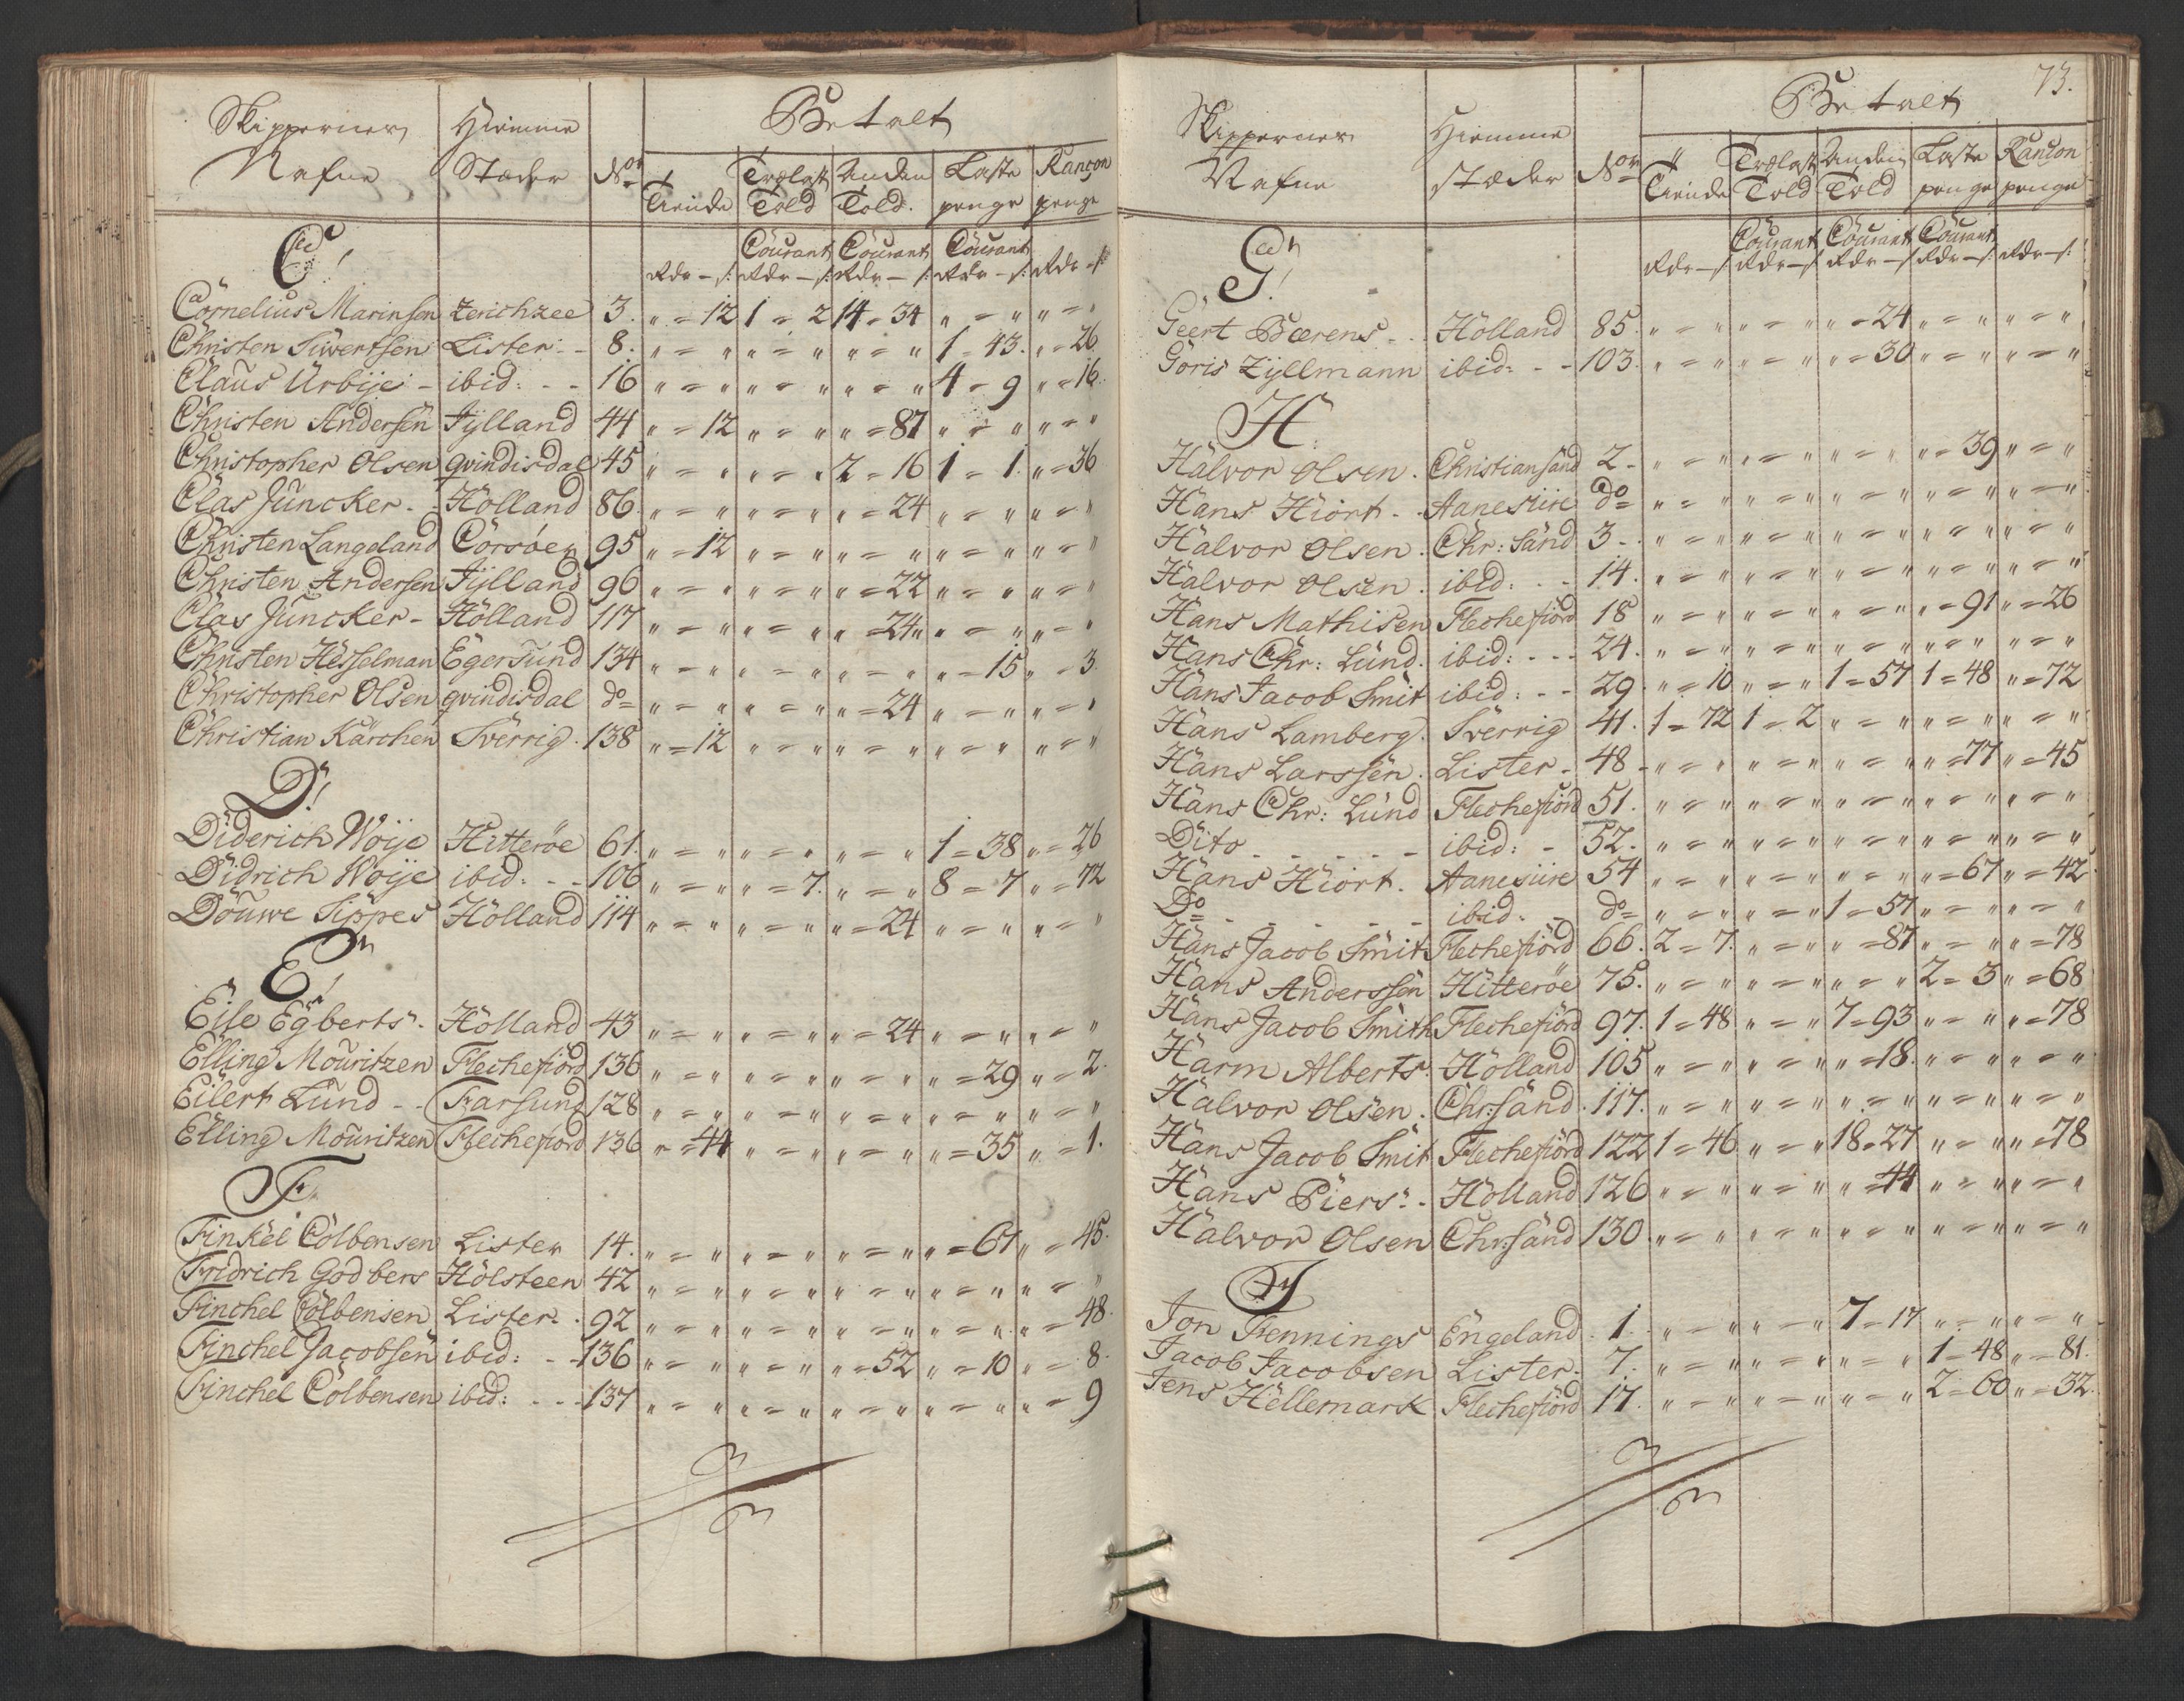 Skippernes Hiemme Betalt
Nafne Stæder No Tiende Trælast Told Anden Told. Laste penge Rançon penge
Courant Courant Courant
Rdr - s: Rdr - s: Rdr - s: Rdr - s: Rdr - s
C!
Cornelius Marinsen Zerichzee 3. " = 12 1 = 2 14 = 34 " = " " = "
Christen Siwertsen Lister - 8. " = " " = " " = " 1 = 43. " = 26
Claus Urbije - ibid: - - 16 " = " " = " " = " 4 = 9 " = 16.
Christen Andersen Jylland 44 " = 12 " = " " = 87 " = " " = "
Christopher Olsen qvindisdal 45 " = " " = " 2 = 16 1 = 1. " = 36
Clas Juncker - Holland 86 " = " " = " " = 24 " = " " = "
Christen Langeland Corsöer 95 " = 12 " = " " = " " = " " = "
Christen Andersen Jylland 96 " = " " = " " = 22 " = " " = "
Clas Juncker - Holland 117 " = " " = " " = 24 " = " " = "
Christen Hesselman Egersund 134 " = " " = " " = " " = 15 " = 3.
Christopher Olsen qvindisdal do " = " " = " " = 24 " = " " = "
Christian Karchen Sverrig. 138 " = 12 " = " " = " " = " " = "
D!
Diderich Woije Hitteröe 61. " = " " = " " = " 1 = 38 " = 26
Didrich Woije ibid: - - 106 " = " " = 7. " = " 8 = 7 " = 72
Douwe Sippes Holland 114 " = " " = " " = 24 " = " " = "
E!
Eise Egberts. Holland 43 " = " " = " " = 24 " = " " = "
Elling Mouritzen Flechefiord 136 " = " " = " " = " " = 29 " = 2.
Eilert Lund - - Farsund 128 " = " " = " " = " " = " " = "
Elling Mouritzen Flechefiord 136 " = 44 " = " " = " " = 35 " = 1.
F.
Finkel Colbensen Lister 14. " = " " = " " = " " = 61 " = 45.
Fridrich Godbers Holsteen 42 " = " " = " " = " " = " " = "
Finchel Colbensen Lister. 92 " = " " = " " = " " = " " = 48.
Finchel Jacobsen ibid: - - 136 " = " " = " " = 52 " = 10 " = 8.
Finchel Colbensen ibid: - - 137 " = " " = " " = " " = " " = 9
73.
Skippernes Hiemme Betalt
Nafne stæder No Tiende Trælast Told Anden Told Laste penge Rançon penge
Courant Courant Courant
Rdr - s Rdr - s Rdr - s Rdr - s: Rdr - s:
G!
Geert Bærens - - Holland 85. " = " " = " " = 24 " = " " = "
Goris Zyllmann ibid: - - 103. " = " " = " " = 30 " = " " = "
H.
Halvor Olsen. Christiansand 2 - " = " " = " " = " " = 39 " = "
Hans Hiort - - Aanesiire do " = " " = " " = " " = " " = "
Halvor Olsen. Chr: Sand 3 - " = " " = " " = " " = " " = "
Halvor Olsen. ibid: - - 14. " = " " = " " = " " = " " = "
Hans Mathisen Flechefiord 18 " = " " = " " = " " = 91 " = 26
Hans Chr: Lund. ibid: - - - 24. " = " " = " " = " " = " " = "
Hans Jacob Smit ibid: - - 29. " = 10 " = " 1 = 57 1 = 48 " = 72
Hans Lamberg. Sverrig 41. 1 = 72 1 = 2 " = " " = " " = "
Hans Larssen. Lister - 48 - " = " " = " " = " " = 77 " = 45
Hans Chr: Lund Flechefiord 51. " = " " = " " = " " = " " = "
Dito - - - - - ibid: - 52. " = " " = " " = " " = " " = "
Hans Hiort. Aanesiire 54 " = " " = " " = " " = 67 " = 42.
Do - - - - - ibid. - do " = " " = " 1 = 57 " = " " = "
Hans Jacob Smit Flechefiord 66. 2 = 7. " = " " = 87 " = " " = 78
Hans Anderssen Hitteröe 75. " = " " = " " = " 2 = 3 " = 68
Hans Jacob Smith Flechefiord 97. 1 = 48 " = " 7 = 93 " = " " = 78
Harm Alberts. Holland 105 " = " " = " " = 18. " = " " = "
Halvor Olsen. Chr:sand. 117. " = " " = " " = " " = " " = "
Hans Jacob Smit Flechefiord 122 1 = 46 " = " 18 = 27 " = " " = 78
Hans Piers. - Holland 126 " = " " = " " = 44 " = " " = "
Halvor Olsen Chr:sand 130. " = " " = " " = " " = " " = "
J
Jon Fennings Engeland. 1. " = " " = " 7 = 17 " = " " = "
Jacob Jacobsen Lister. 7. " = " " = " " = " 1 = 48 " = 81.
Jens Hellemark Flechefiord 17. " = " " = " " = " 2 = 60 " = 32.